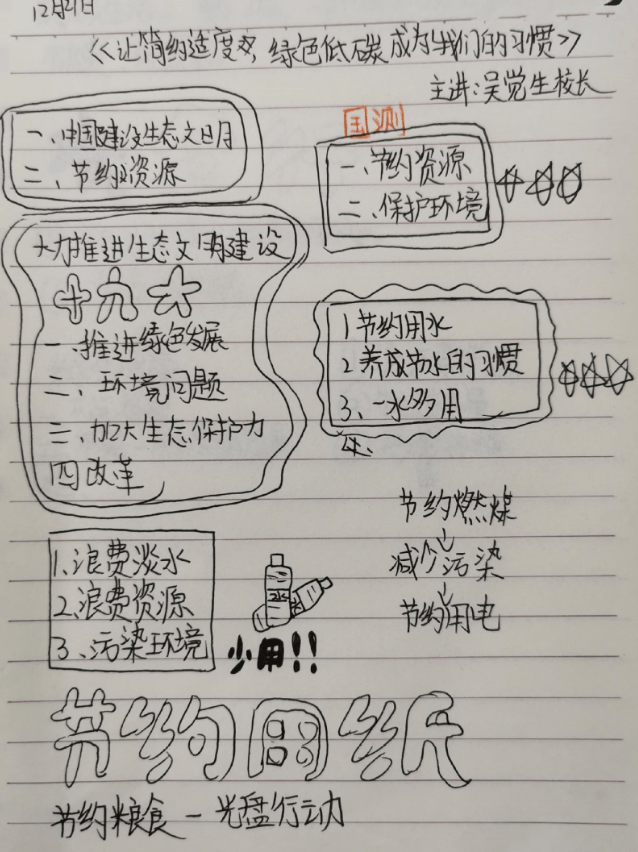 12月21日
《让简约适度、绿色低碳成为我们的习惯》
主讲:吴觉生校长
一、中国建设生态文明
二、节约资源
国测
一、节约资源
二、保护环境
大力推进生态文明建设
十九六
一推进绿色发展
二、环境问题
三、加大生态保护力
四改革
1节约用水
2养成节水的习惯
3、一水多用
4、
节约燃煤
减少污染
节约用电
1、浪费淡水
2浪费资源
3、污染环境
少用!!
节约用纸
节约粮食-光盘行动